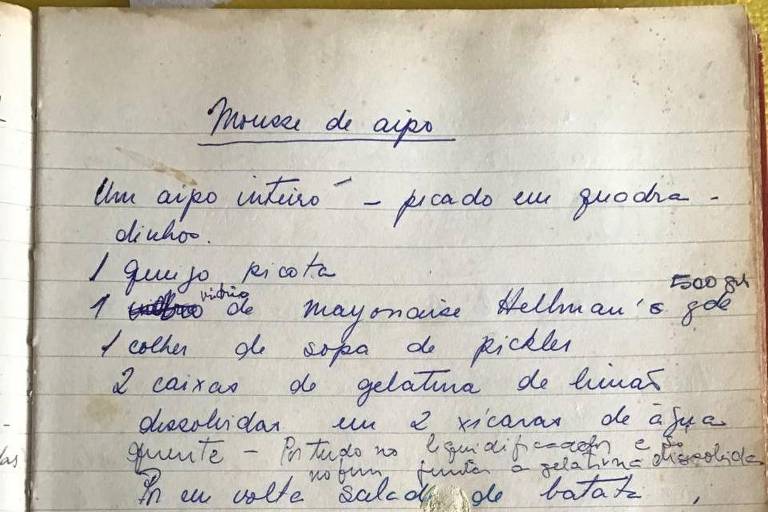 Mousse de aipo
Um aipo inteiro - picado em quadra-
dinhos.
1 queijo picota
500 gr
1 vidrio de mayonaise Hellman's gde
1 colher de sopa de pickles
2 caixas de gelatina de limão
dissolvidas em 2 xícaras de água
quente - Por tudo no liquidificador e só
no fim juntar a gelatina dissolvida
Por em volta salada de batata,
das